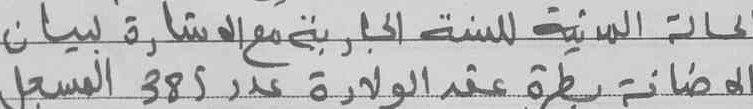 لحالة المدنية للسنة الجارية مع الاشارة لبيان
الاضافة بطرة عقد الولادة عدد 385 المسجل